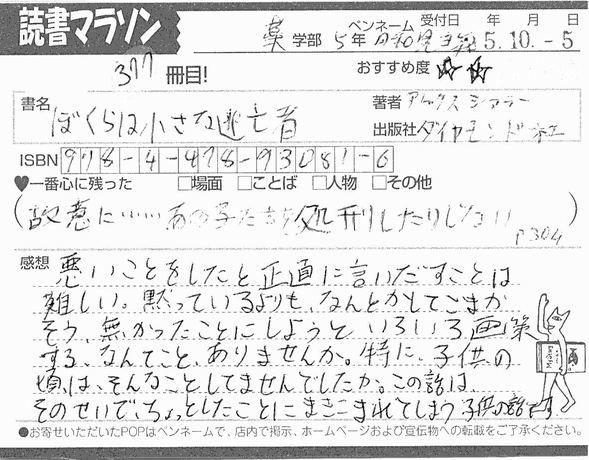 読書マラソン
薬 学部 5年 ペンネーム 受付日 年 月 日
5.10.-5
377 冊目! おすすめ度 ☆☆
書名 ぼくらは小さな逃亡者
著者 アレックス シアラー
出版社 ダイヤモンド社
ISBN 978-4-478-93081-6
♥一番心に残った □場面 □ことば □人物 □その他
(故意に……あの子たちを処刑したりしない p304)
感想 悪いことをしたと正直に言いだすことは
難しい。黙っているよりも、なんとかしてごまか
そう、無かったことにしようと いろいろ画策
する、なんてこと、ありませんか。特に、子供の
頃は、そんなことしてませんでしたか。この話は
そのせいで、ちょっとしたことにまきこまれてしまう子供の話です
●お寄せいただいたPOPはペンネームで、店内で掲示、ホームページおよび宣伝物への転載をご了承ください。